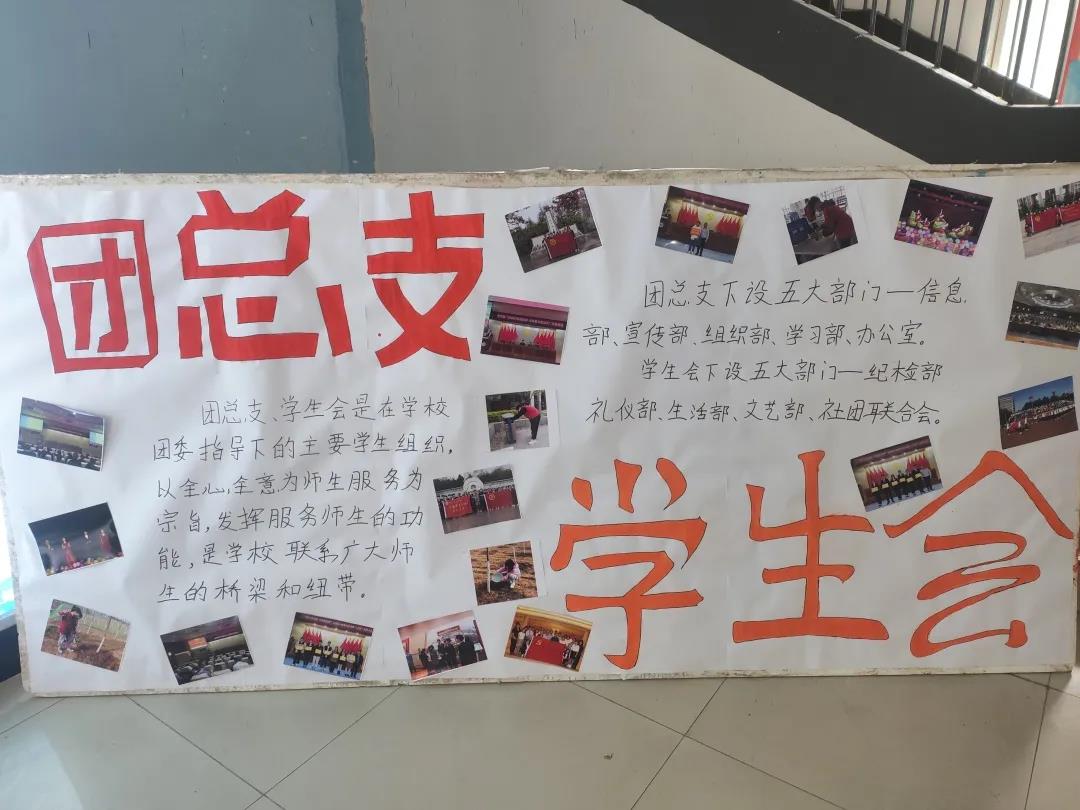 团总支
团总支、学生会是在学校
团委指导下的主要学生组织，
以全心，全意为师生服务为
宗旨，发挥服务师生的功
能，是学校联系广大师
生的桥梁和纽带。
团总支下设五大部门—信息
部、宣传部、组织部、学习部、办公室。
学生会下设五大部门—纪检部
礼仪部、生活部、文艺部、社团联合会。
学生会